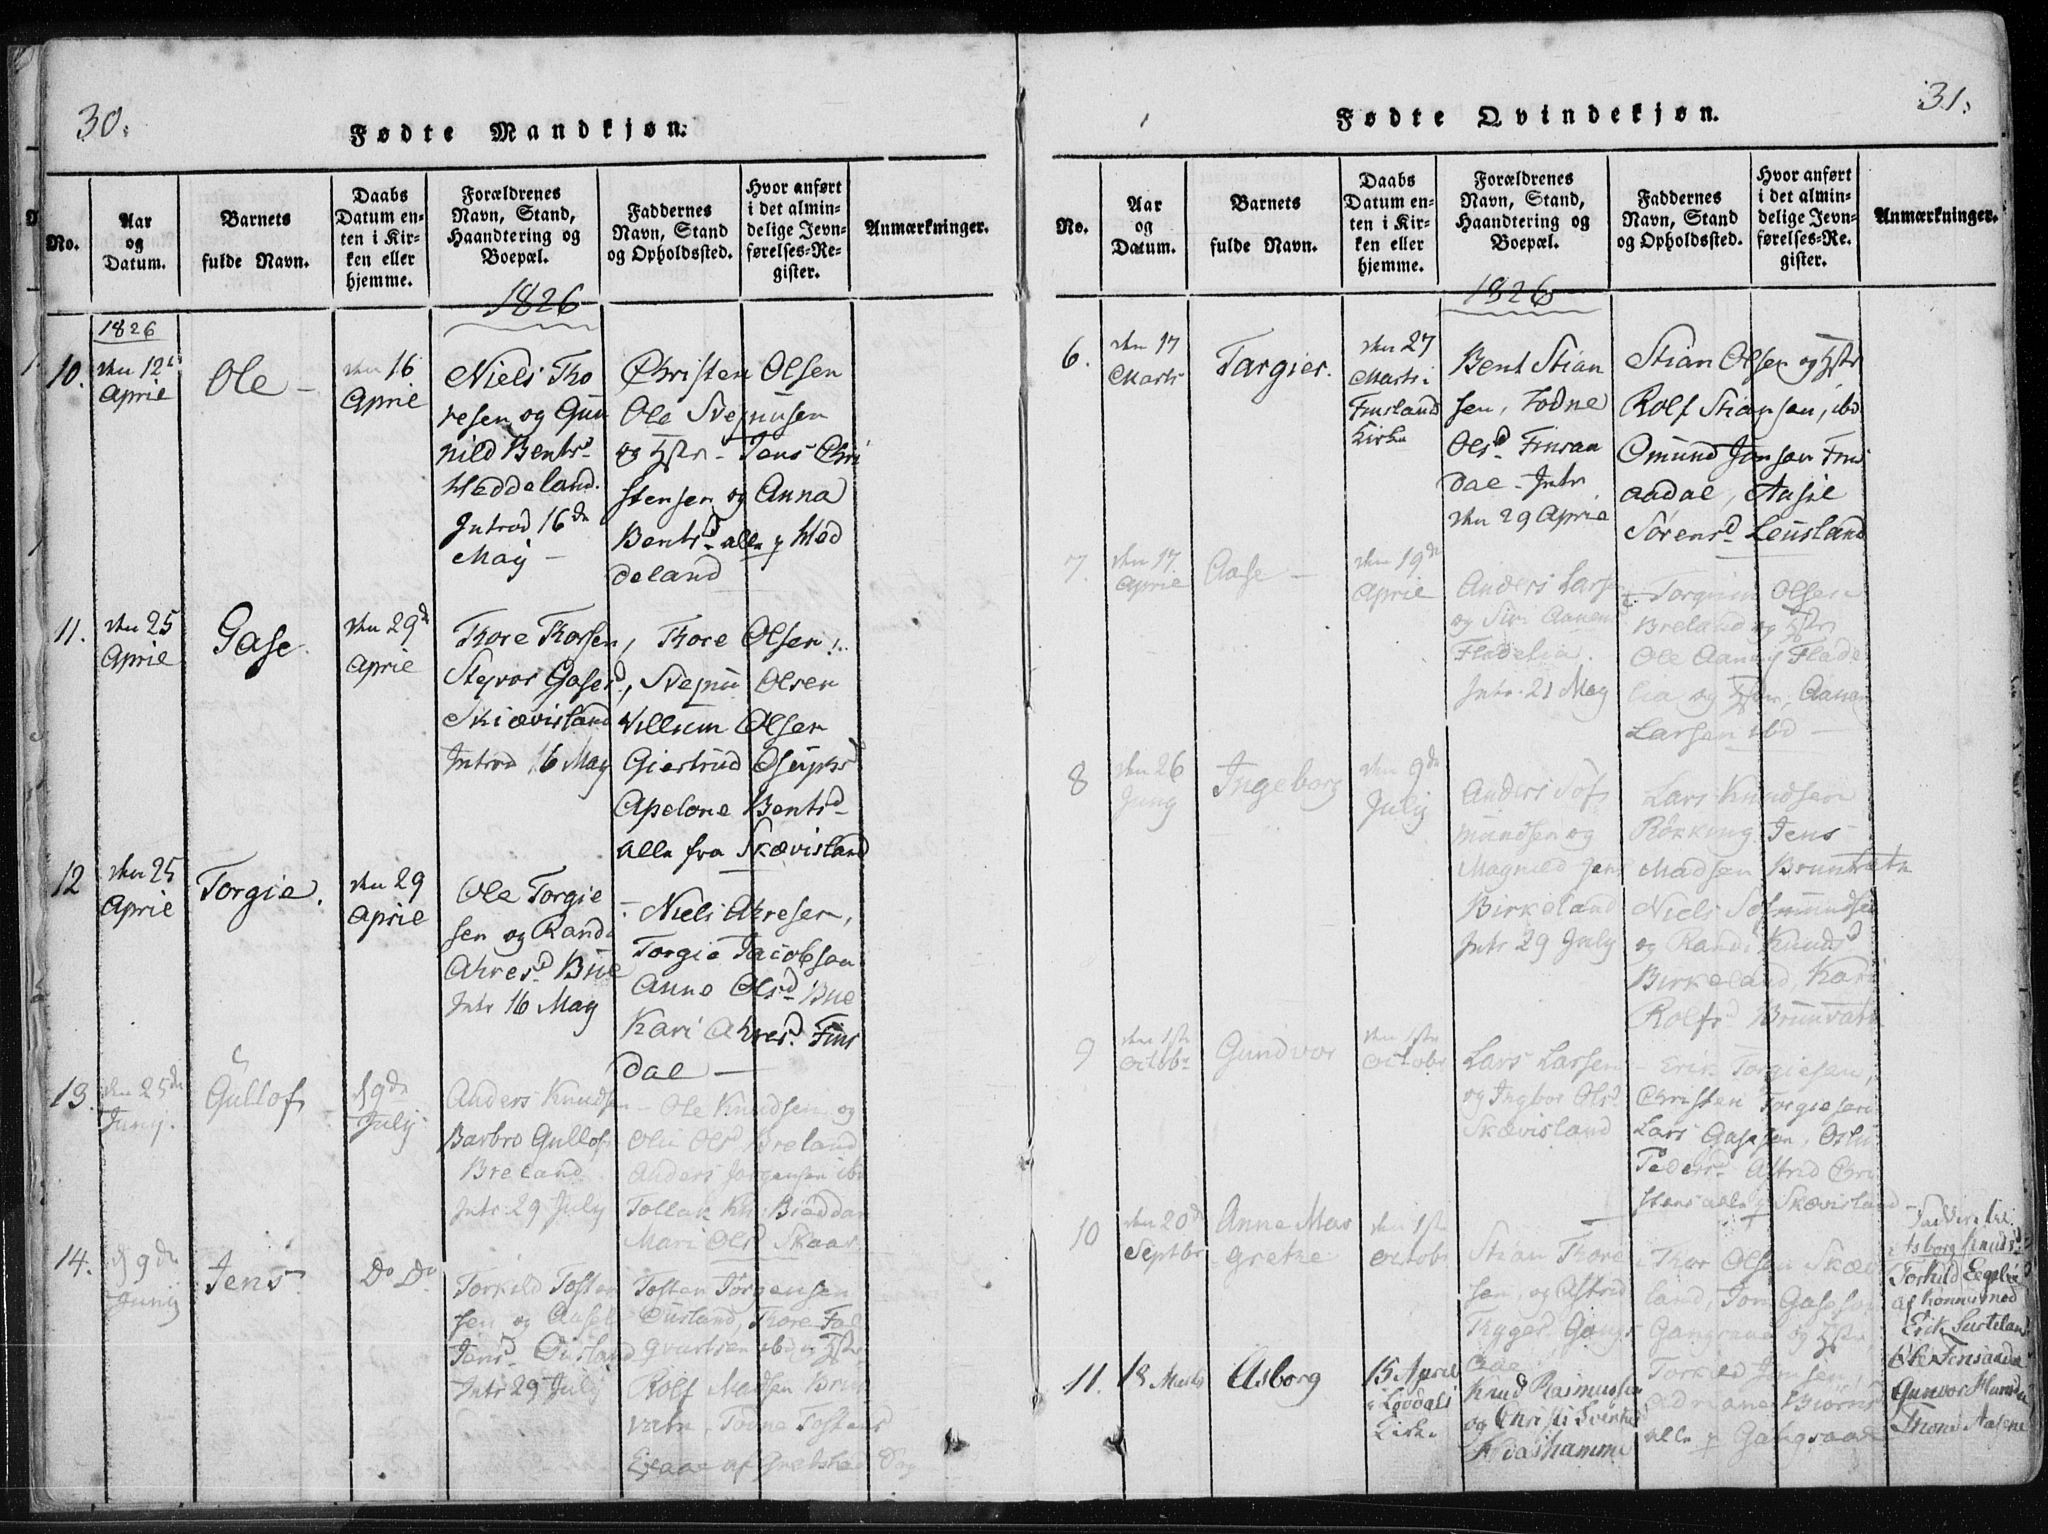 30.
Fødte Mandkjøn.
No.
Aar og Datum.
Barnets fulde Navn.
Daabs Datum enten i Kirken eller hjemme.
Forældrenes Navn, Stand, Haandtering og Boepæl.
Faddernes Navn, Stand og Opholdssted.
Hvor anført i det almindelige Jevnførelses-Register.
Anmærkninger.
1826
1826
10.
den 12te
April
Ole
den 16
April
Niels Tho
resen og Gun
nild Bentsd
Heddeland.
Introd 16de
May
Christen Olsen
Ole Stejnusen
og Hstr Jens Chri
stensen og Anna
Bentsd alle p Hed
deland
11.
den 25
April
Gase.
den 29de
April
Thore Thorsen,
Siyvor Gasesd,
Skiævisland
Introd 16 May
Thore Olsen,
Stejnu Olsen
Willum Olsen
Giertrud
Apelone Bentsd
alle fra Skævisland
12
den 25
April
Torgie.
den 29
April
Ole Torgie
sen og Rand
Akresd Bue
Intr 16 May
Niels Akresen,
Torgie Jacobsen
Anne Olsd Bue
Kari Akresd Fins
dal
13.
den 25de
Juny.
Gullof
d 9de
July
Anders Knudsen
Barbro Gullofs
Breland
Intr. 29 July
Ole Knudsen og
Oli Olsd Breland
Anders Jørgensen ibd
Tollak Kn:
Mari Olsd Skaar
14.
d 9de
Juny
Jens
Do Do
Torkild Toste
sen og Aasel
Jensd Ousland
Intr 29 July
Tosten Jørgensen
Ousland, Thore Fal
qvartsen ibd Hstr
Rolf Madsen Brun
vatn, Todne Tostensd
31.
Fødte Qvindekjøn.
No.
Aar og Datum.
Barnets fulde Navn.
Daabs Datum enten i Kirken eller hjemme.
Forældrenes Navn, Stand, Haandtering og Boepæl.
Faddernes Navn, Stand og Opholdssted.
Hvor anført i det almindelige Jevnførelses-Register.
Anmærkninger.
1826
6.
den 17
Marts
Targier.
den 27
Marts i
Finsland
Kirke
Bent Stian
sen, Todne
Olsd Finsaa
dal. Intr.
den 29 April
Stian Olsen og Hstr
Rolf Stiansen, ibd
Omund Jensen Fins
aadal, Aasil
Sørensd Leusland
7.
den 17.
April
Aase
den 19de
April
Anders Larse
og Siri Aanen
Fladelia.
Intr. 21 May
Torquin Olsen
Breland og Hstr
Ole Aanens Flade
lia og Hstr, Aanen
Larsen ibd
8
den 26
Juny
Ingeborg
den 9de
July
Anders Sof
mundsen og
Magnild Jens
Birkeland
Intr 29 July
Lars Knudsen
Røkking Jens
Madsen Brunvatn
Niels Sofmundsen
og Randi Knudsd
Birkeland, Kari
Rolfsd Brunvatn
9
den 1ste
Octobr
Gundvor
den 1ste
Octobr
Lars Larsen
og Ingbor Olsd
Skævisland
Erik Torgiesen,
Christen Torgiesen
Lars Gasesen, Oslu
Pedersd Astrid Chri
stens alle p Skævisland
10
den 20de
Septbr
Anne Mar
grethe
den 1ste
Octobr
Stian Thore
sen, og Astrid
Thygesd Gangs
aae
Thor Olsen Skæv
land, Tom Gasesen
Gangsaae og Hstr,
Torkild Jensen,
Adriane Biørns
alle p Gangsaae
11.
18 Marts
Asborg
15 April
i Løvdals
Kirke
Knud Rasmussen
og Christi
Fadderne
Asborg Knudsd
Torkild
Erik
Ole Finsaadal
Gunvor